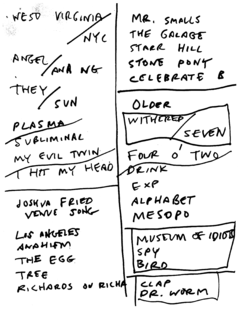 WEST VIRGINIA
NYC
ANGEL
ANA NG
THEY
SUN
PLASMA
SUBLIMINAL
MY EVIL TWIN
I HIT MY HEAD
JOSHUA FRIED
VENUE SONG
LOS ANGELES
ANAHIEM
THE EGG
TREE
RICHARDS ON RICHA
MR. SMALLS
THE GALAGE
STARR HILL
STONE PONY
CELEBRATE B
OLDER
WITHERED
SEVEN
FOUR O' TWO
DRINK
EXP
ALPHABET
MESOPO
MUSEUM OF IDIOTS
SPY
BIRD
CLAP
DR. WORM